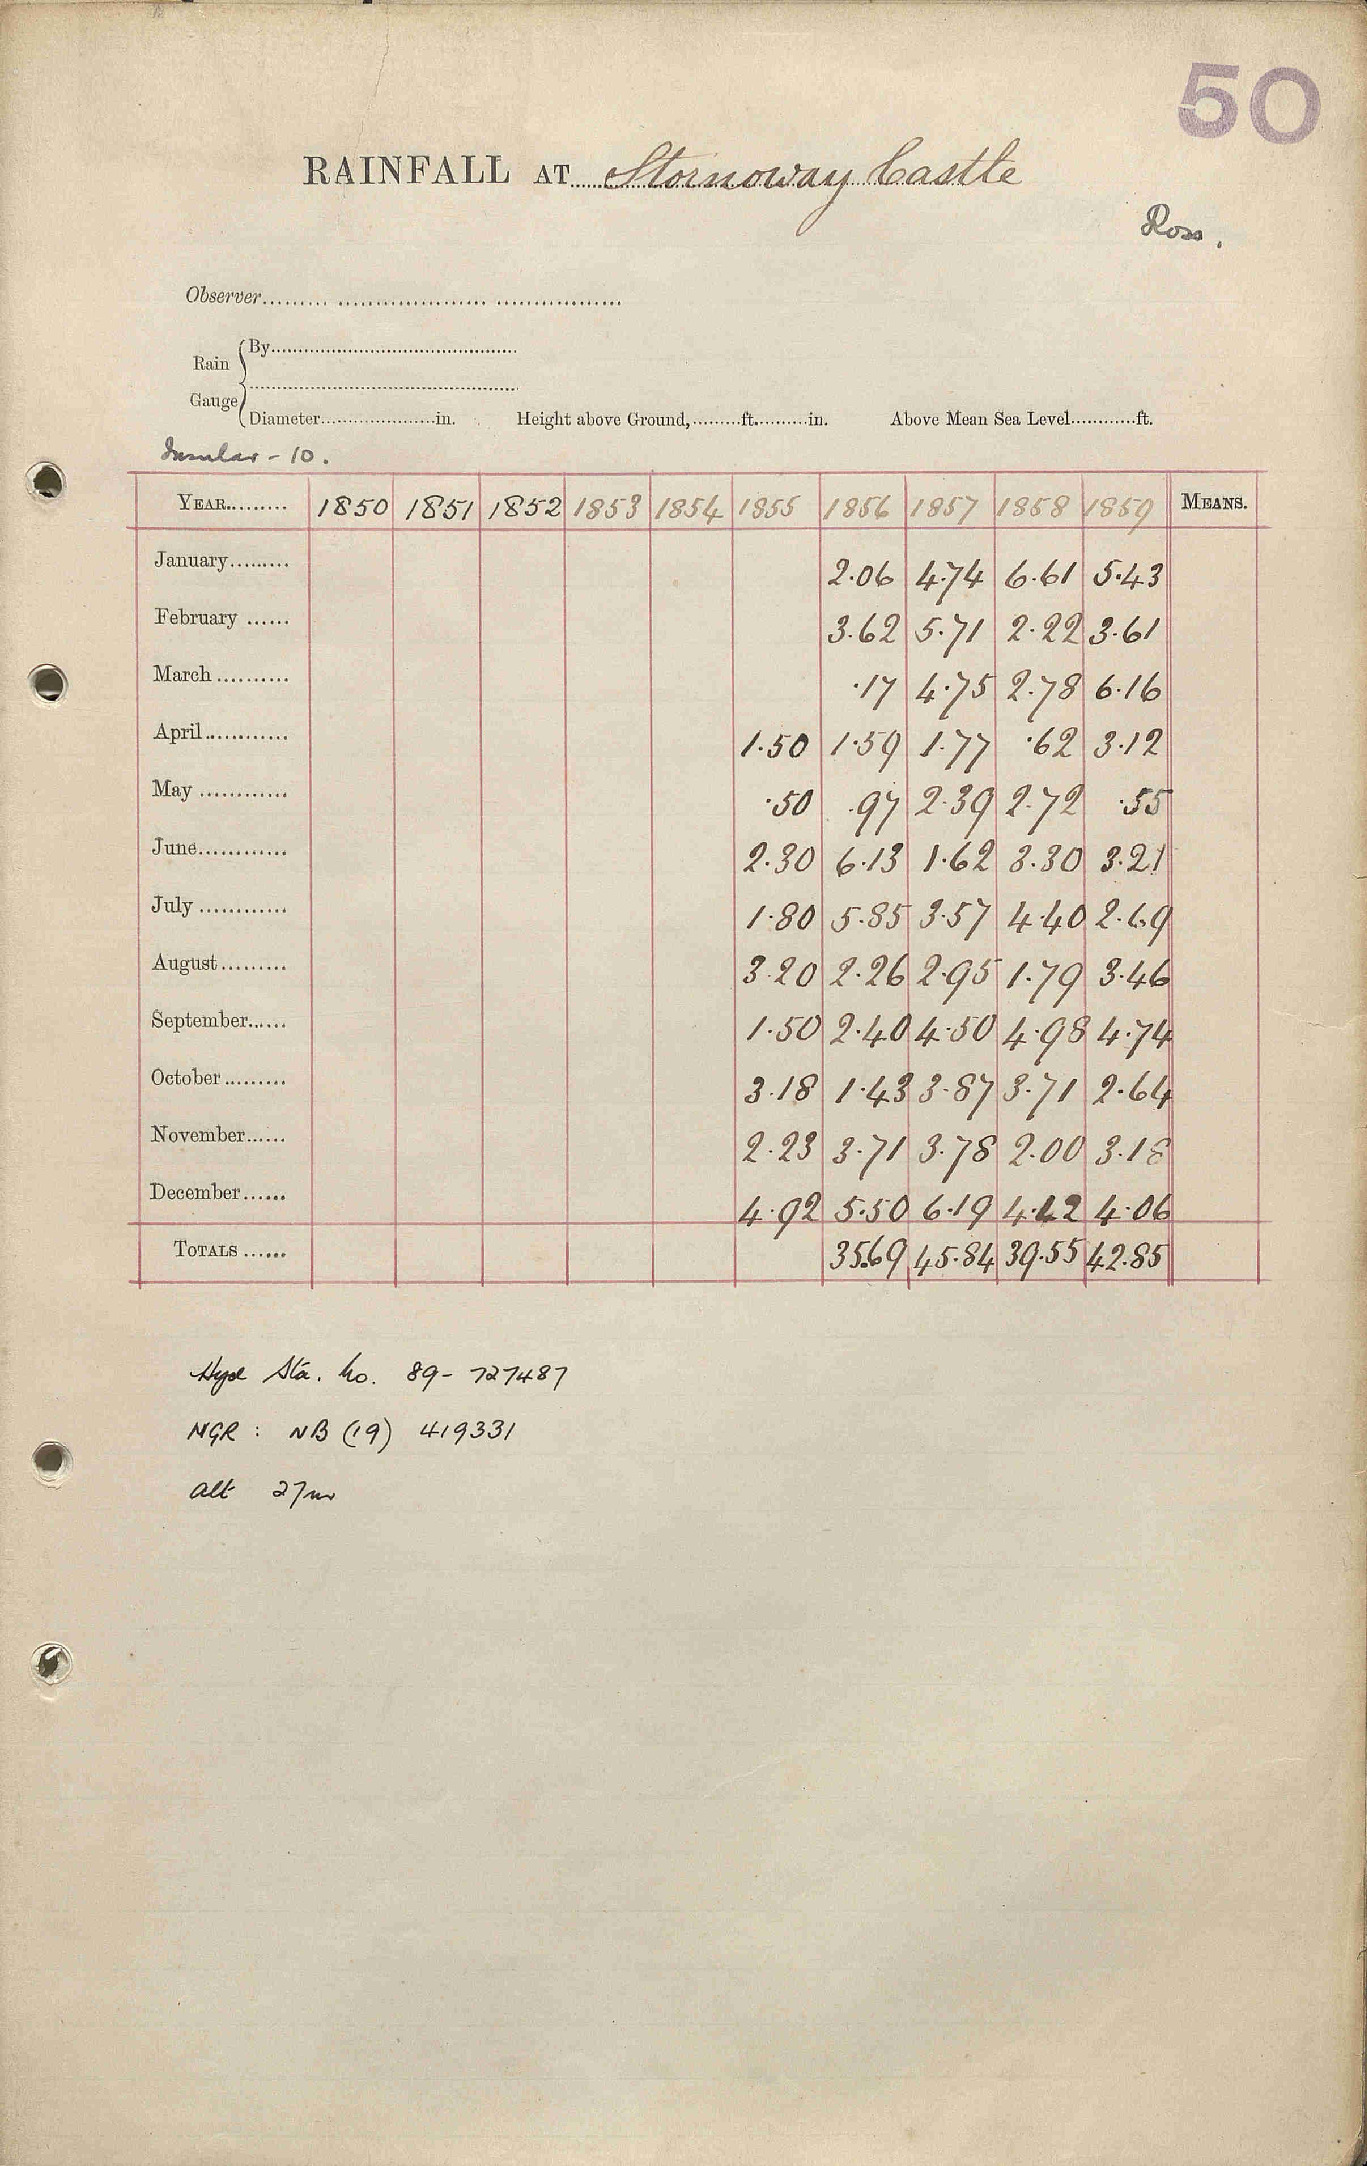 50
RAINFALL AT Stornoway Castle
Ross.
Observer
By
Rain
Gauge
Diameter in. Height above Ground, ft. in. Above Mean Sea Level ft.
Insular - 10.
YEAR 1850 1851 1852 1853 1854 1855 1856 1857 1858 1859 MEANS.
January 2.06 4.74 6.61 5.43
February 3.62 5.71 2.22 3.61
March .17 4.75 2.78 6.16
April 1.50 1.59 1.77 .62 3.12
May .50 .97 2.39 2.72 .55
June 2.30 6.13 1.62 3.30 3.21
July 1.80 5.85 3.57 4.40 2.69
August 3.20 2.26 2.95 1.79 3.46
September 1.50 2.40 4.50 4.98 4.74
October 3.18 1.43 3.87 3.71 2.64
November 2.23 3.71 3.78 2.00 3.18
December 4.92 5.50 6.19 4.42 4.06
TOTALS 35.69 45.84 39.55 42.85
Hyd Sta. No. 89-727487
NGR : NB (19) 419331
Alt 27m